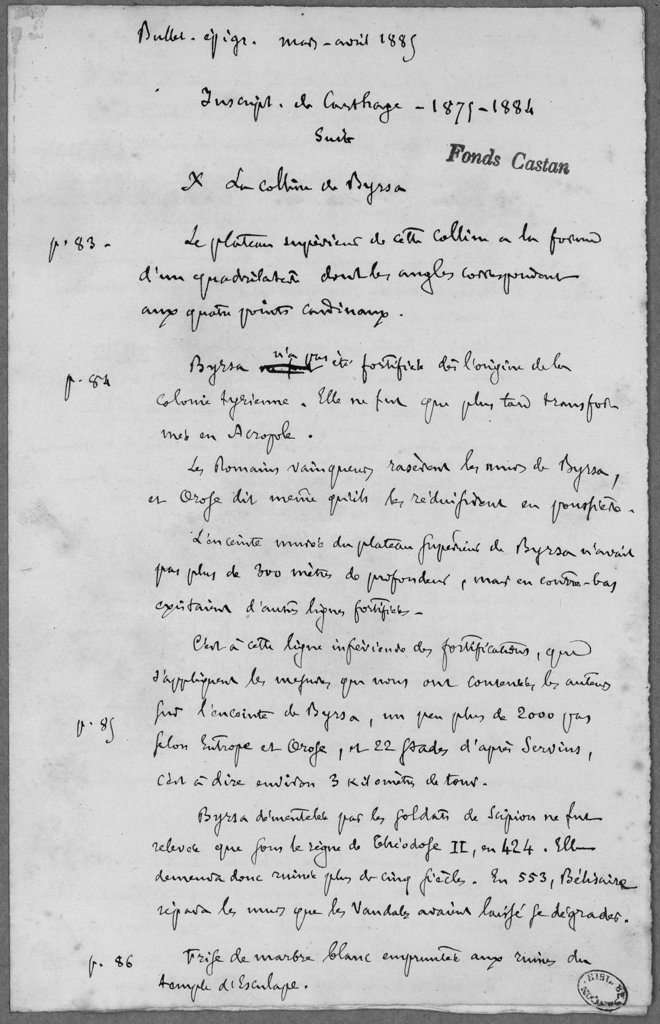 Bullet. épigr. mars-avril 1885
Inscript. de Carthage - 1875-1884
Suite
Fonds Castan
X La colline de Byrsa
p. 83 - Le plateau supérieur de cette colline a la forme
d'un quadrilatère dont les angles correspondent
aux quatre points cardinaux.
p. 84 Byrsa n'a pas été fortifiée dès l'origine de la
colonie tyrienne. Elle ne fut que plus tard transfor
mée en Acropole.
Les Romains vainqueurs rasèrent les murs de Byrsa,
et Orose dit même qu'ils les réduisirent en poussière.
L'enceinte murée du plateau supérieur de Byrsa n'avait
pas plus de 300 mètres de profondeur, mais en contre-bas
existaient d'autres lignes fortifiées -
C'est à cette ligne inférieure des fortifications, que
s'appliquent les mesures que nous ont conservées les auteurs
p. 85 sur l'enceinte de Byrsa, un peu plus de 2000 pas
selon Eutrope et Orose, et 22 stades d'après Servius,
c'est à dire environ 3 kilomètres de tour.
Byrsa démantelée par les soldats de Scipion ne fut
relevée que sous le règne de Théodose II, en 424. Elle
demeura donc ruinée plus de cinq siècles. En 553, Bélisaire
répara les murs que les Vandales avaient laissé se dégrader.
p. 86 Frise de marbre blanc empruntée aux ruines du
temple d'Esculape.